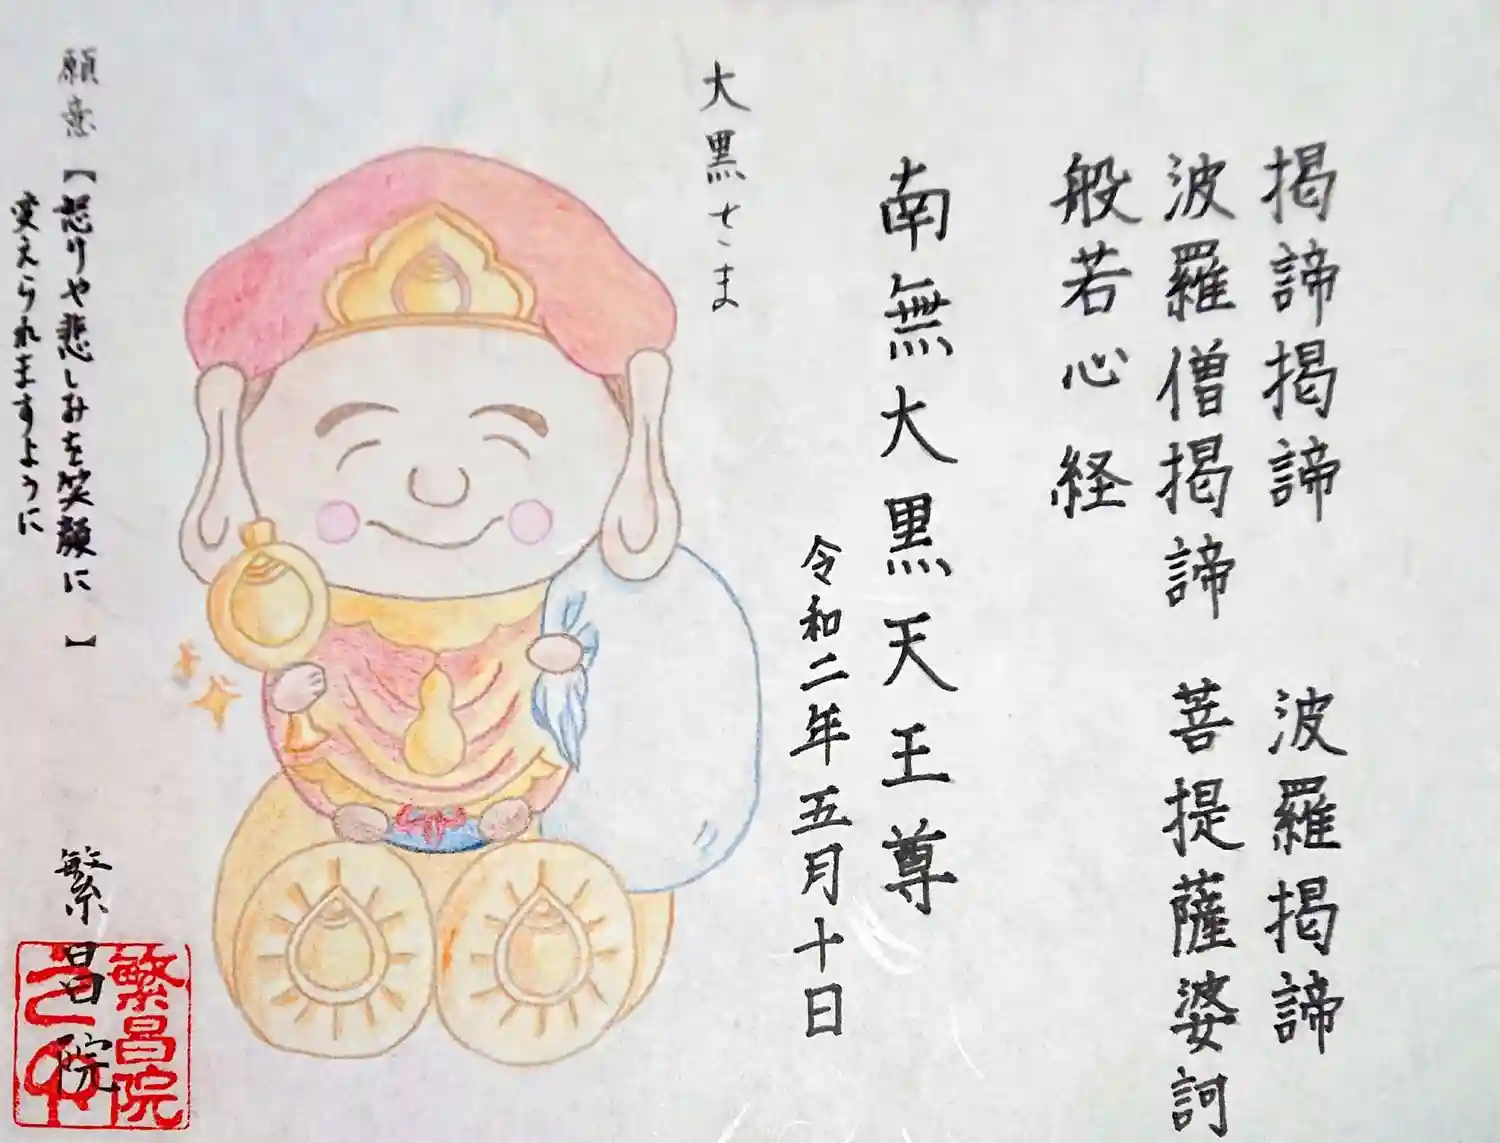 揭諦揭諦 波羅揭諦
波羅僧揭諦 菩提薩婆訶
般若心経
南無大黒天王尊
令和二年五月十日
大黒さま
願意【怒りや悲しみを笑顔に
変えられますように】
繁昌院
繁昌院
之印